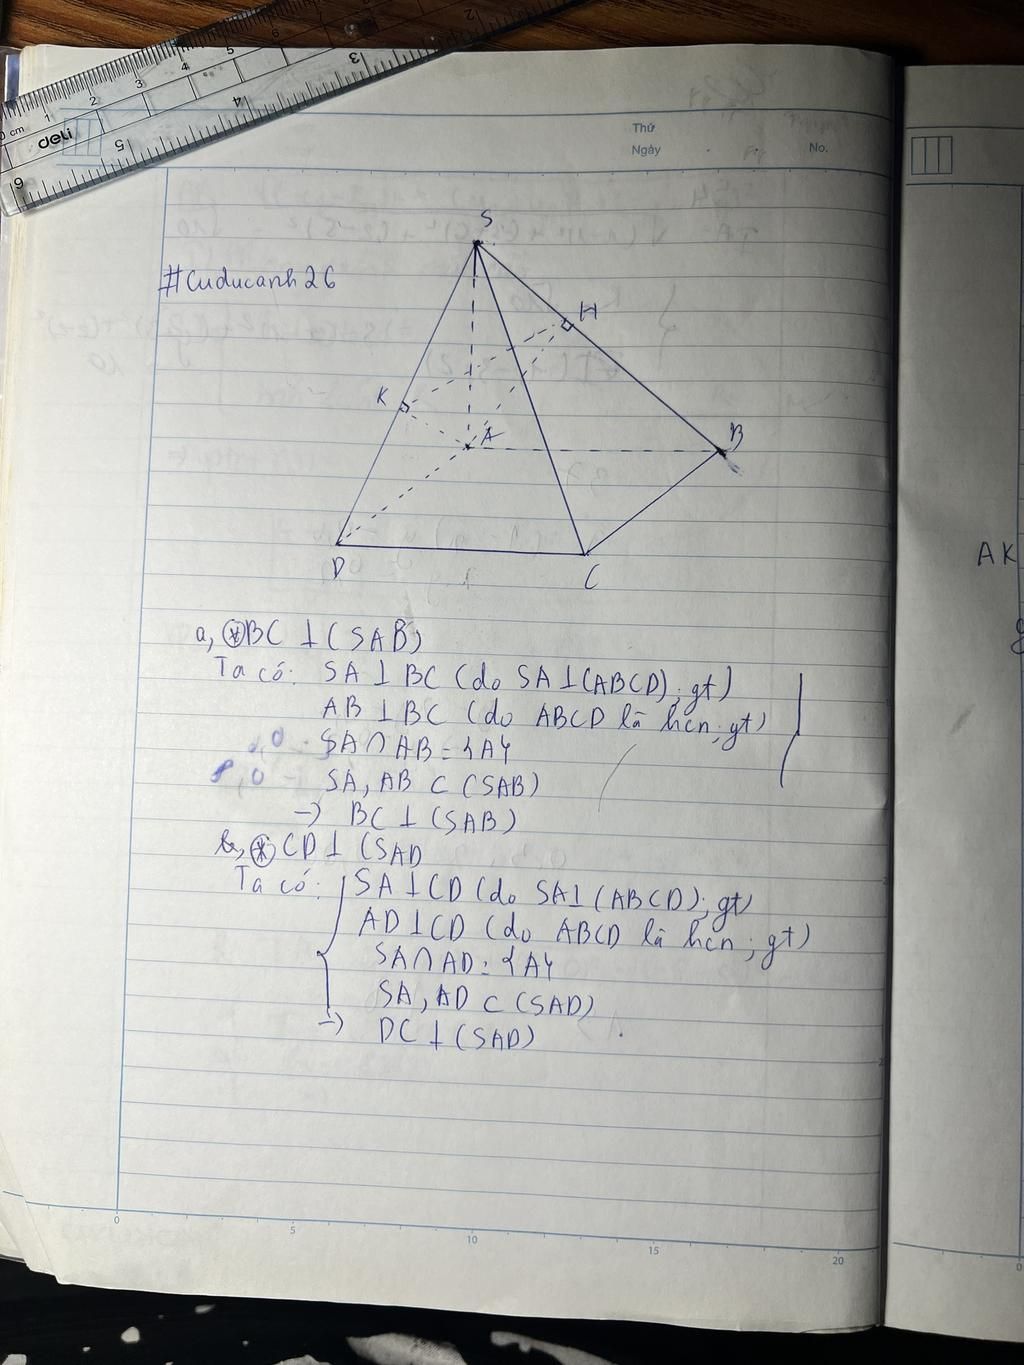 0 cm 1 2 3 4 5 6
deli
6 5 4 3 2
Thứ
Ngày
No.
S
#Cuducanh26
H
K
A
B
D
C
AK
a, * BC ⊥ (SAB)
Ta có: SA ⊥ BC (do SA ⊥ (ABCD); gt)
AB ⊥ BC (do ABCD là hcn; gt)
SA ∩ AB = {A}
SA, AB ⊂ (SAB)
→ BC ⊥ (SAB)
b, * CD ⊥ (SAD
Ta có: SA ⊥ CD (do SA ⊥ (ABCD); gt)
AD ⊥ CD (do ABCD là hcn; gt)
SA ∩ AD = {A}
SA, AD ⊂ (SAD)
→ DC ⊥ (SAD)
0 5 10 15 20
0